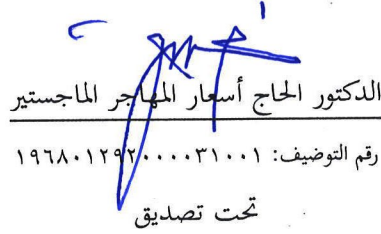 الدكتور الحاج أسعار المهاجر الماجستير
رقم التوضيف: ١٩٦٨٠١٢٩٢٠٠٠٠٣١٠٠١
تحت تصديق